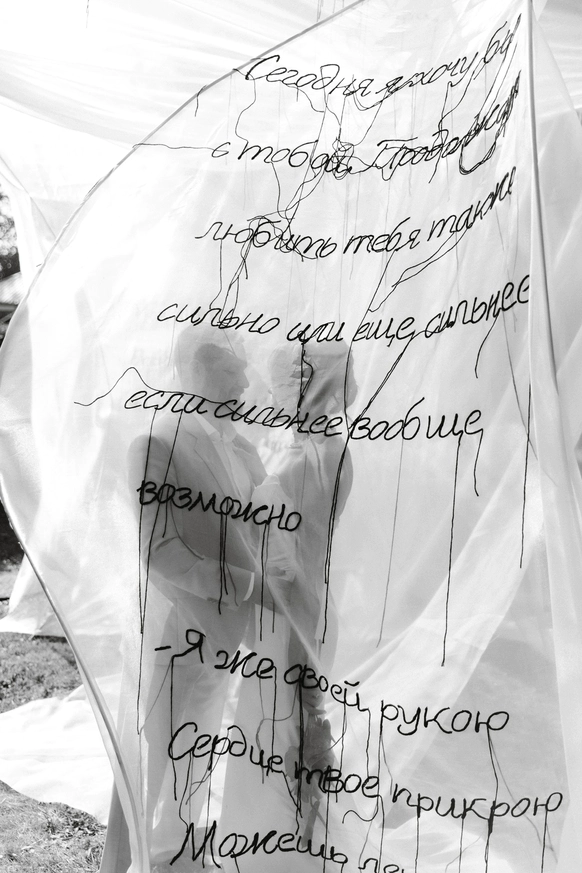 Сегодня я хочу быть
с тобой. Продолжать
любить тебя также
сильно или еще сильнее
если сильнее вообще
возможно
-Я же своей рукою
Сердце твое прикрою
Можешь